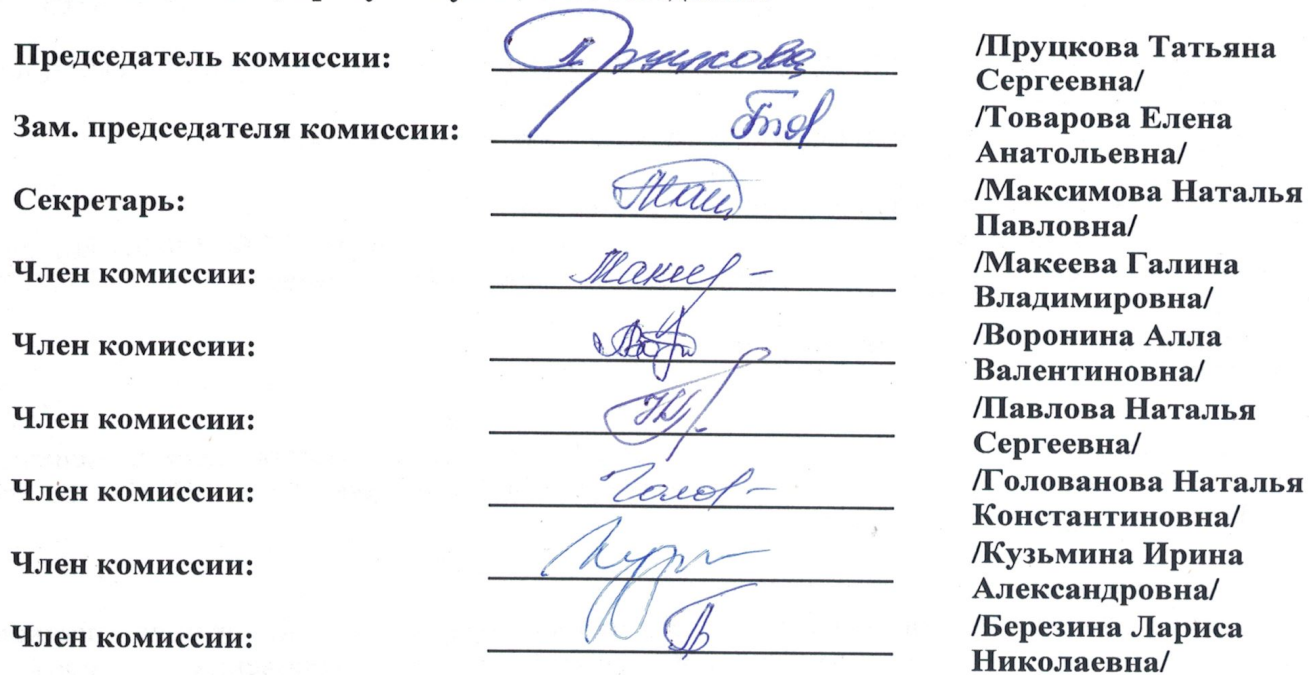 Председатель комиссии: Пруцкова /Пруцкова Татьяна
Сергеевна/
Зам. председателя комиссии: /Товарова Елена
Анатольевна/
Секретарь: /Максимова Наталья
Павловна/
Член комиссии: /Макеева Галина
Владимировна/
Член комиссии: /Воронина Алла
Валентиновна/
Член комиссии: /Павлова Наталья
Сергеевна/
Член комиссии: /Голованова Наталья
Константиновна/
Член комиссии: /Кузьмина Ирина
Александровна/
Член комиссии: /Березина Лариса
Николаевна/